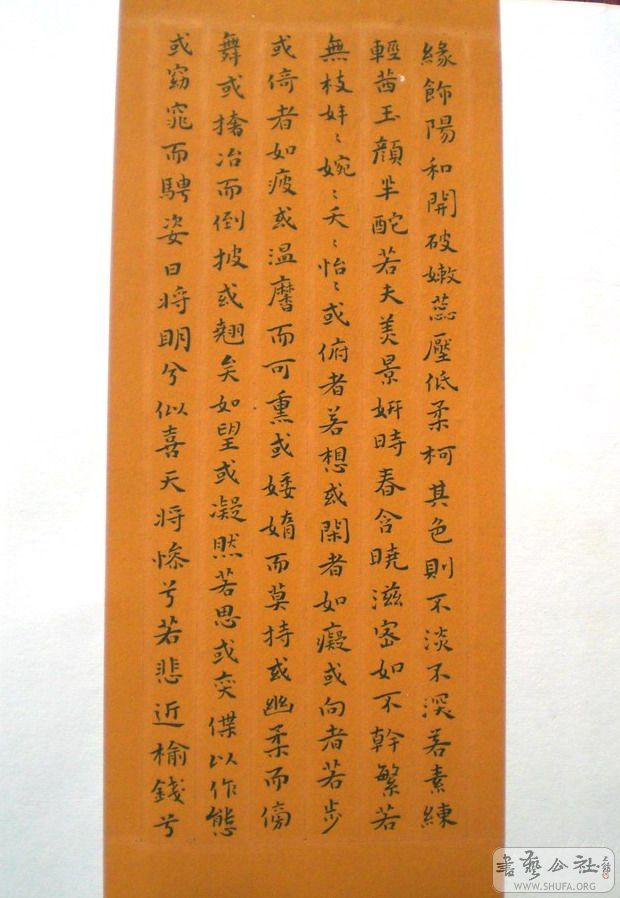 緣飾陽和開破嫩蕊壓低柔柯其色則不淡不深若素練
輕茜玉顏半酡若夫美景妍時春含曉滋密如不幹繁若
無枝姅〻婉〻夭〻怡〻或俯者若想或閑者如癡或向者若步
或倚者如疲或溫黁而可熏或婑媠而莫持或幽柔而傍
舞或搚冶而倒披或翹矣如望或凝然若思或奕傑以作態
或窈窕而騁姿日將明兮似喜天將慘兮若悲近榆錢兮
書藝公社
WWW.SHUFA.ORG